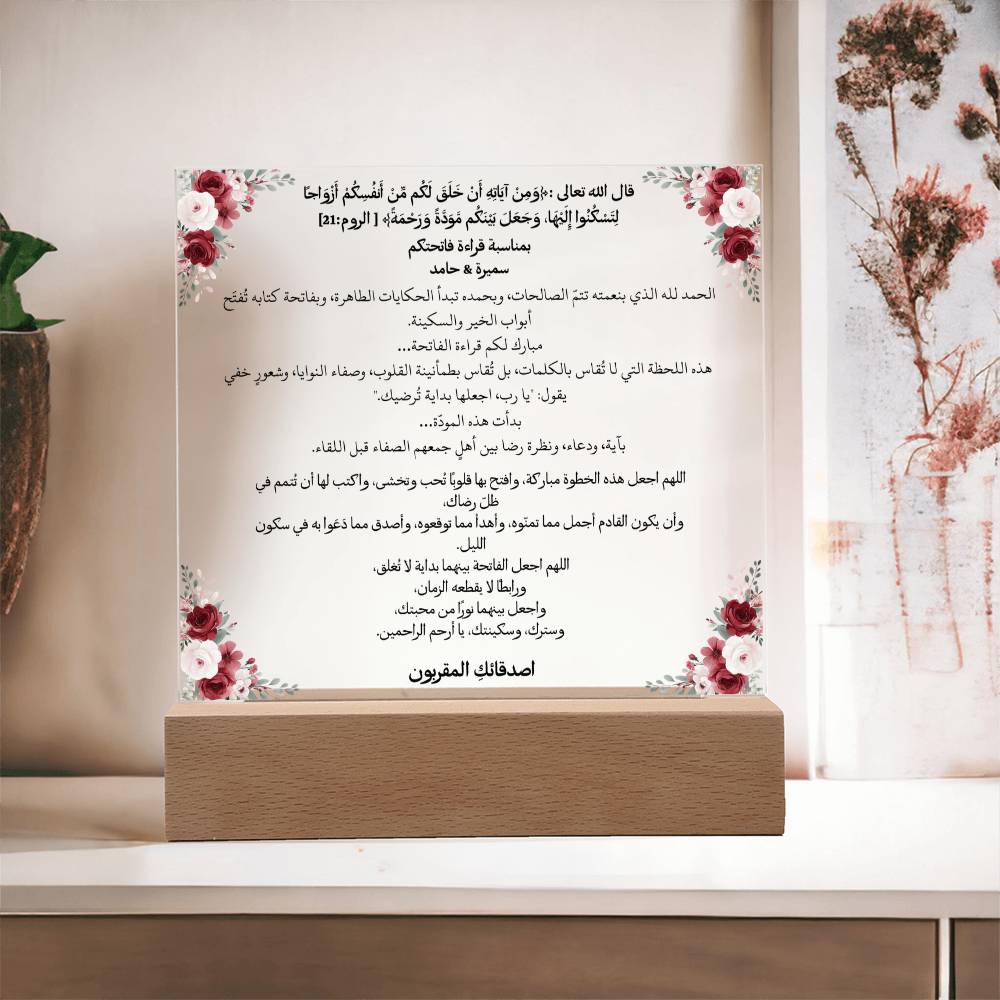 قال الله تعالى :﴿وَمِنْ آيَاتِهِ أَنْ خَلَقَ لَكُم مِّنْ أَنفُسِكُمْ أَزْوَاجًا
لِتَسْكُنُوا إِلَيْهَا، وَجَعَلَ بَيْنَكُم مَّوَدَّةً وَرَحْمَةً﴾ [ الروم:21]
بمناسبة قراءة فاتحتكم
سميرة & حامد
الحمد لله الذي بنعمته تتمّ الصالحات، وبحمده تبدأ الحكايات الطاهرة، وبفاتحة كتابه تُفتَح
أبواب الخير والسكينة.
مبارك لكم قراءة الفاتحة...
هذه اللحظة التي لا تُقاس بالكلمات، بل تُقاس بطمأنينة القلوب، وصفاء النوايا، وشعورٍ خفي
يقول: "يا رب، اجعلها بداية تُرضيك."
بدأت هذه المودّة...
بآية، ودعاء، ونظرة رضا بين أهلٍ جمعهم الصفاء قبل اللقاء.
اللهم اجعل هذه الخطوة مباركة، وافتح بها قلوبًا تُحب وتخشى، واكتب لها أن تُتمم في
ظلّ رضاك،
وأن يكون القادم أجمل مما تمنّوه، وأهدأ مما توقعوه، وأصدق مما دَعَوا به في سكون
الليل.
اللهم اجعل الفاتحة بينهما بداية لا تُغلق،
ورابطًا لا يقطعه الزمان،
واجعل بينهما نورًا من محبتك،
وسترك، وسكينتك، يا أرحم الراحمين.
اصدقائكِ المقربون